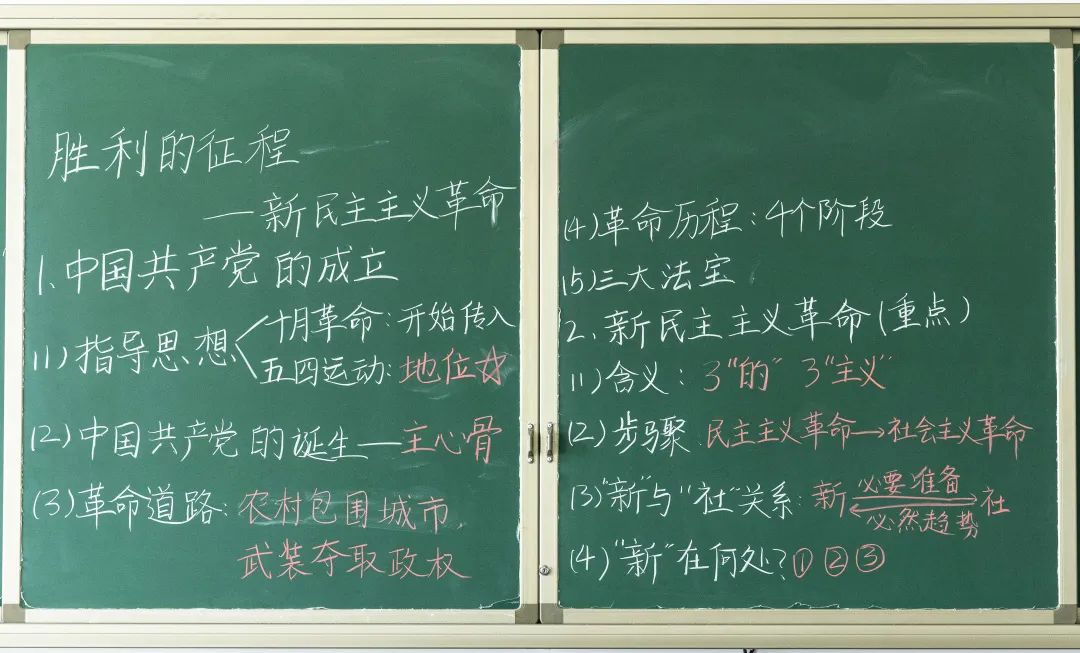 胜利的征程
—新民主主义革命
1.中国共产党的成立
(1)指导思想<十月革命:开始传入
五四运动:地位☆
(2)中国共产党的诞生—主心骨
(3)革命道路:农村包围城市
武装夺取政权
(4)革命历程:4个阶段
(5)三大法宝
2.新民主主义革命(重点)
(1)含义:3"的" 3"主义"
(2)步骤:民主主义革命→社会主义革命
(3)"新"与"社"关系:新 必要准备 社
必然趋势
(4)"新"在何处?①②③